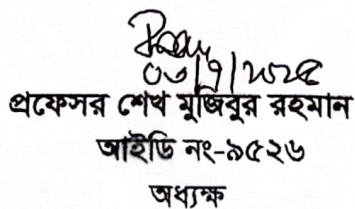 প্রফেসর শেখ মুজিবুর রহমান
আইডি নং-৯৫২৬
অধ্যক্ষ